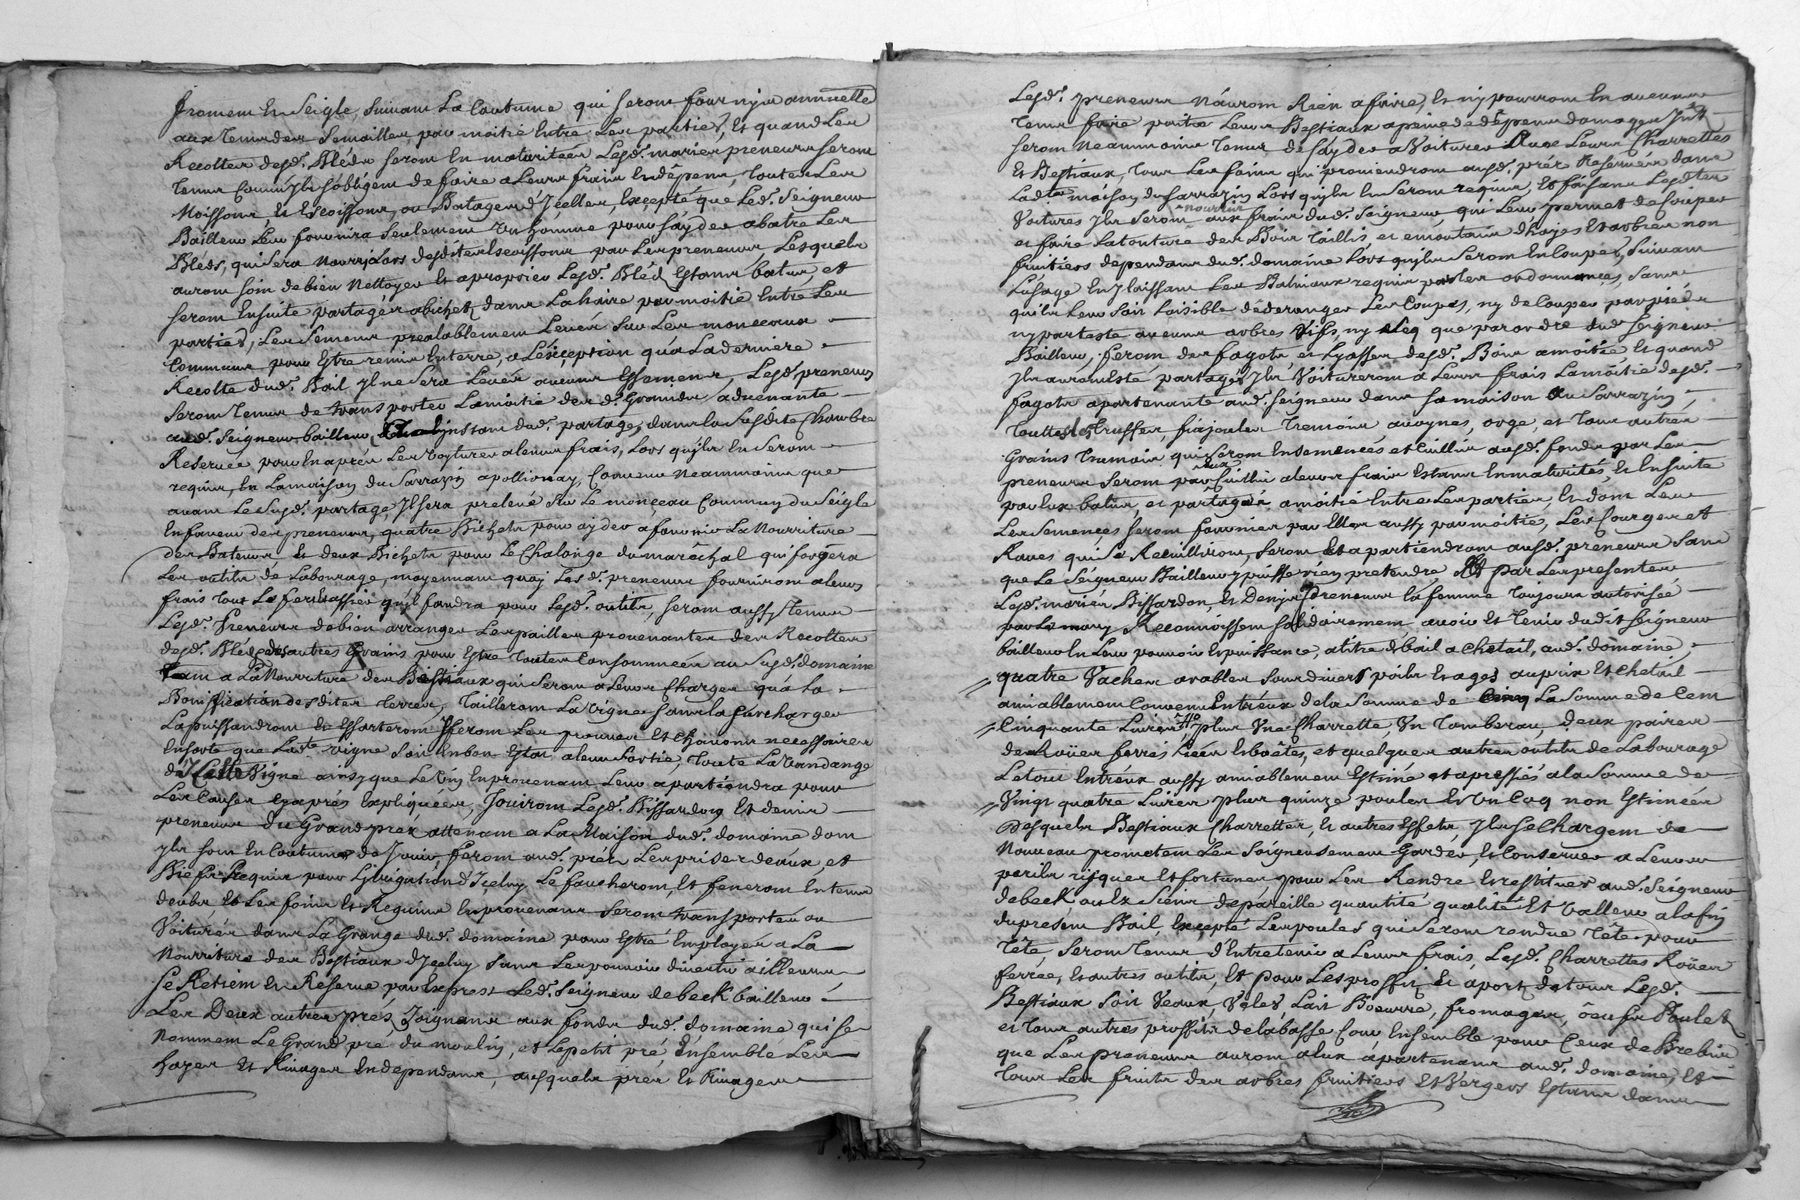 froment et seigle, suivant La Coutume qui seront fournyes annuelle
aux tems des semailles, par moitié Entre Les parties, Et quand Les
Recoltes desd. Bleds seront En maturitées Lesd. mariés preneurs seront
tenus Comme Ils s'obligent de faire a Leurs frais Et dépens, toutes Les
Moissons Et Escoissons, ou Batages d'Jcelles, Excepté que Led. Seigneur
Bailleur Leur fournira seulement Un homme pour s'ayder a batre Les
Bleds, qui sera nourry Lors desdites Escoissons par Les preneurs Lesquels
auront soin de bien Nettoyer Et aproprier Lesd. Bled Estans batus, et
seront Ensuite partagés a bichet, dans La haire par moitié Entre Les
parties, Les semens prealablement Levés sur Les monceaux
Communs pour Estre remis En terre, a L'exception qu'a La derniere
Recolte dud. Bail Il ne sera Levés aucuns Essemens, Lesd. preneurs
seront tenus de transporter La moitié des d. Grains advenante
aud. Seigneur bailleur, a L'instant dud. partage, dans la susdite Chambre
Reservée, pour En aprés Les voyturer a leurs frais, Lors qu'ils En seront
requis, En La maison du Sarrazin apollionay, Convenu Neammoins que
avant Le susd. partage, Il sera prelevé sur Le monceau Commun du Seigle
En faveur des preneurs, quatre Bichets pour ayder a fournir La Nourriture
des Bateurs Et deux Bichets pour Le Chalonge du maréchal qui forgera
Les outils de Labourage, moyennant quoy Lesd. preneurs fourniront a leurs
frais tout Le fer Et assier qu'il faudra pour Lesd. outils, seront aussy tenus
Lesd. Preneurs de bien arranger Les pailles provenantes des Recoltes
desd. Bled et autres Grains pour Estre toutes Consommées au susd. domaine
tant a La Nourriture des Bestiaux qui seront a Leurs Charges qu'a La
Bonniffication desdites terres, Tailleront La vigne sans la surcharger
La puissendront Et Essarteront Et feront Les provins Et Chosions necessaires
En sorte que Lad. vigne soit En bon Estat a leur sortie, toute La Vandange
de Jcelle Vigne ainsy que Le Vin En provenant Leur apartiendra pour
Les Causes Cy aprés Expliquées, Jouiront Lesd. Bissardon Et denis
preneurs du Grand pré attenant a La Maison dud. domaine dont
Ils sont En Coutume de Jouir, feront aud. prés Les prises d'eaux et
Bief Requis pour L'Jrrigation d'Jceluy Le faucheront, Et feneront En tems
deubs Et Les foins Et Requins En provenans seront transportés ou
Voiturés dans La Grange dud. domaine pour Estre Employer a La
Nourriture des Bestiaux d'Jceluy sans Les pouvoir divertir ailleurs
Se Retient Et Reserve par Exprest Led. Seigneur debeck bailleur
Les Deux autres prés Joignans aux fonds dud. domaine qui se
Nomment Le Grand pré du moulin, et Le petit pré, Ensemble Les
hayes Et Rivages En dependans, ausquels prés Et Rivages
Lesd. preneurs n'auront Rien a faire, Et n'y pourront En aucuns
tems faire paître Leurs Bestiaux a peine de dépens domages Jnt.
seront Neammoins tenus de s'ayder a Voiturer Avec Leurs Charrettes
Et Bestiaux, tous Les foins qui proviendront ausd. prés Reservés dans
Lad. maison du Sarrazin Lors qu'ils En seront requis, Et faisant Lesdites
Voitures Ils seront nourris aux frais dud. Seigneur qui Leur permet de Couper
et faire La tonture des Bois taillis, et emontans d'hayes Et arbres non
fruitiers dependans dud. domaine Lors qu'ils seront En Coupes, suivant
L'usage En y laissant Les Baliveaux requis par Les ordonnances, sans
qu'il Leur soit Loisible de deranger Les Coupes, ny de Couper par pieds
ny par teste aucuns arbres Vifs, ny secq que par ordre dud. Seigneur
Bailleur, feront des fagots et Lyasses desd. Bois a moitié Et quand
Ils auront Esté partagés Ils Voitureront a Leurs frais La moitié desd.
fagots apartenante aud. Seigneur dans sa maison du Sarrazin,
Touttes Les truffes frajoules tremois avoynes, orge, et tous autres
Grains tremois qui seront Ensemencés et Cuillis ausd. fonds par Les
preneurs seront par Eux Cuillis a leurs frais Estans En maturités, Et Ensuite
par Eux batus, et partagés a moitié Entre Les parties, Et dont Les
Les semences seront fournies par Elles aussy par moitié, Les Courges et
Raves qui se Recuilliront, seront Et apartiendront ausd. preneurs sans
que Le Seigneur Bailleur y puisse rien pretendre, Et par Les presentes
Lesd. mariés Bissardon, Et Denis preneurs la femme toujours autorisée
par Le mary Reconnoissent solidairement avoir Et tenir dudit Seigneur
bailleur En Leur pouvoir Et puissance, a titre de bail a Chetail, aud. domaine,
quatre Vaches arables sous divers poils Et ages au prix Et Chetail
amiablement Convenu Entr'eux de la Somme de La Somme de Cent
Cinquante Livres, plus Une Charrette, Un Tombereau, deux paires
de Roües ferrés Essieu Et boâtes, et quelques autres outils de Labourage
Le tout Entr'eux aussy amiablement Estimé et apressiés a la Somme de
Vingt quatre Livres plus quinze poules Et Un Coq non Estimées
Desquels Bestiaux Charrettes, Et autres Effets, Ils se Chargent de
Nouveau promettent Les soigneusement Garder, Et Conserver a Leurs
perils risques Et fortunes, pour Les Rendre Et restituer aud. Seigneur
debeck ou Ex siens de pareille quantité qualité Et valleur a la fin
du present Bail, Excepté Les poules qui seront rendue Tête pour
Tête, seront tenus d'Entretenir a Leurs frais Lesd. Charrettes Roües
ferrée, Et autres outils, Et pour Les proffit Et aport de tous Lesd.
Bestiaux soit Veaux, Veles, Lait Boeurre, fromages, oeufs Poulets
et tous autres proffits de la basse Cour Ensemble pour Ceux de Brebis
que Les preneurs auront a Eux apartenans aud. domaine, Et
tous Les fruits des arbres fruitiers Et Vergers Estans dans